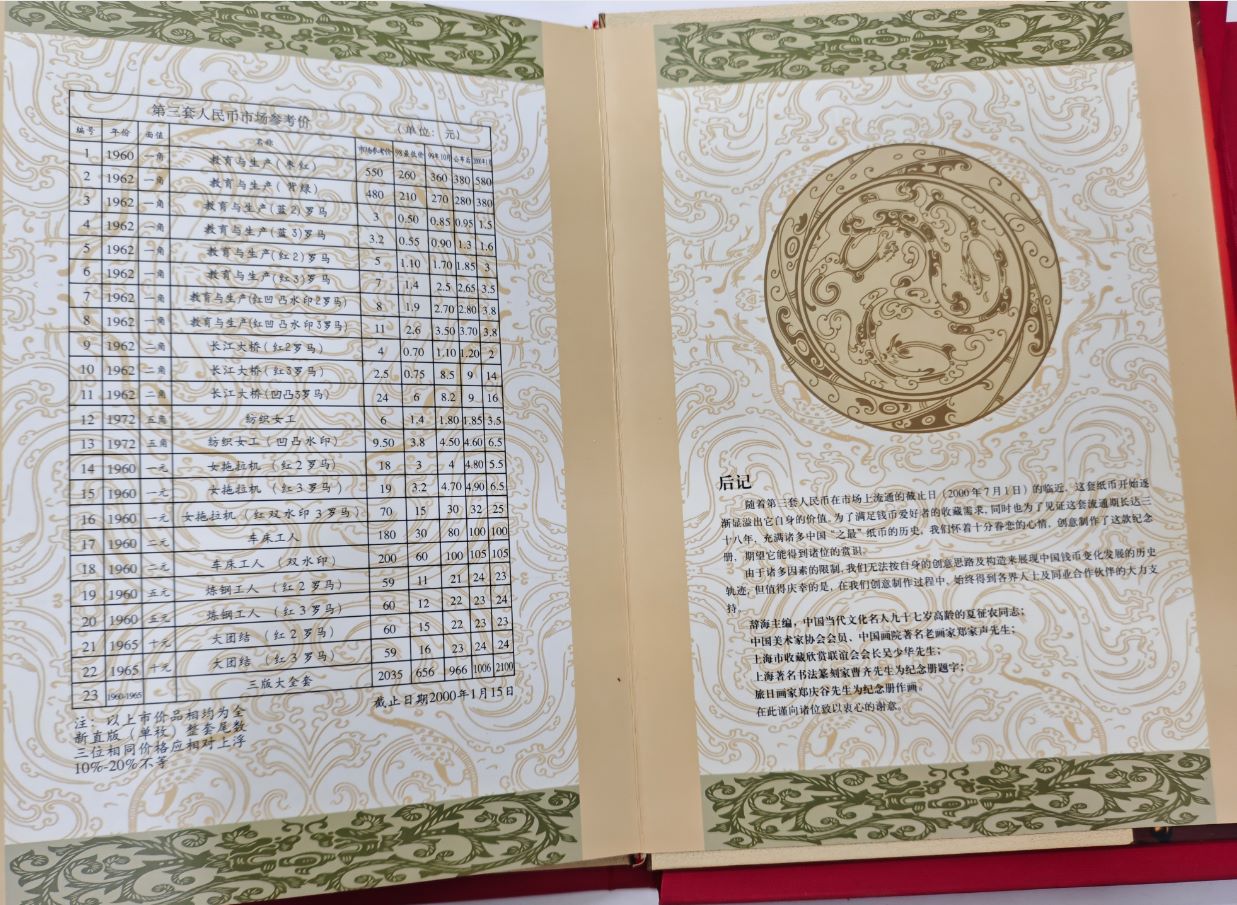 第三套人民币市场参考价 (单位：元)
编号 年份 面值 名称 市场参考价 98最低价 99年10月 公布后 2000年1月
1 1960 一角 教育与生产(枣红) 550 260 360 380 580
2 1962 一角 教育与生产(背绿) 480 210 270 280 380
3 1962 一角 教育与生产(蓝2)罗马 3 0.50 0.85 0.95 1.5
4 1962 一角 教育与生产(蓝3)罗马 3.2 0.55 0.90 1.3 1.6
5 1962 一角 教育与生产(红2)罗马 5 1.10 1.70 1.85 3
6 1962 一角 教育与生产(红3)罗马 7 1.4 2.5 2.65 3.5
7 1962 一角 教育与生产(红凹凸水印2罗马) 8 1.9 2.70 2.80 3.8
8 1962 一角 教育与生产(红凹凸水印3罗马) 11 2.6 3.50 3.70 3.8
9 1962 二角 长江大桥(红2罗马) 4 0.70 1.10 1.20 2
10 1962 二角 长江大桥(红3罗马) 2.5 0.75 8.5 9 14
11 1962 二角 长江大桥(凹凸3罗马) 24 6 8.2 9 16
12 1972 五角 纺织女工 6 1.4 1.80 1.85 3.5
13 1972 五角 纺织女工(凹凸水印) 9.50 3.8 4.50 4.60 6.5
14 1960 一元 女拖拉机(红2罗马) 18 3 4 4.80 5.5
15 1960 一元 女拖拉机(红3罗马) 19 3.2 4.70 4.90 6.5
16 1960 一元 女拖拉机(红双水印3罗马) 70 15 30 32 25
17 1960 二元 车床工人 180 30 80 100 100
18 1960 二元 车床工人(双水印) 200 60 100 105 105
19 1960 五元 炼钢工人(红2罗马) 59 11 21 24 23
20 1960 五元 炼钢工人(红3罗马) 60 12 22 23 24
21 1965 十元 大团结(红2罗马) 60 15 22 23 23
22 1965 十元 大团结(红3罗马) 59 16 23 24 24
23 1960-1965 三版大全套 2035 656 966 1006 2100
截止日期2000年1月15日
注：以上市价品相均为全
新直版(单枚)整套尾数
三位相同价格应相对上浮
10%-20%不等
后记
随着第三套人民币在市场上流通的截止日(2000年7月1日)的临近，这套纸币开始逐
渐显溢出它自身的价值。为了满足钱币爱好者的收藏需求，同时也为了见证这套流通期长达三
十八年、充满诸多中国“之最”纸币的历史，我们怀着十分眷恋的心情，创意制作了这款纪念
册，期望它能得到诸位的赏识。
由于诸多因素的限制，我们无法按自身的创意思路及构造来展现中国钱币变化发展的历史
轨迹，但值得庆幸的是，在我们创意制作过程中，始终得到各界人士及同业合作伙伴的大力支
持。
辞海主编，中国当代文化名人九十七岁高龄的夏征农同志；
中国美术家协会会员、中国画院著名老画家郑家声先生；
上海市收藏欣赏联谊会会长吴少华先生；
上海著名书法篆刻家曹齐先生为纪念册题字；
旅日画家郑庆谷先生为纪念册作画。
在此谨向诸位致以衷心的谢意。